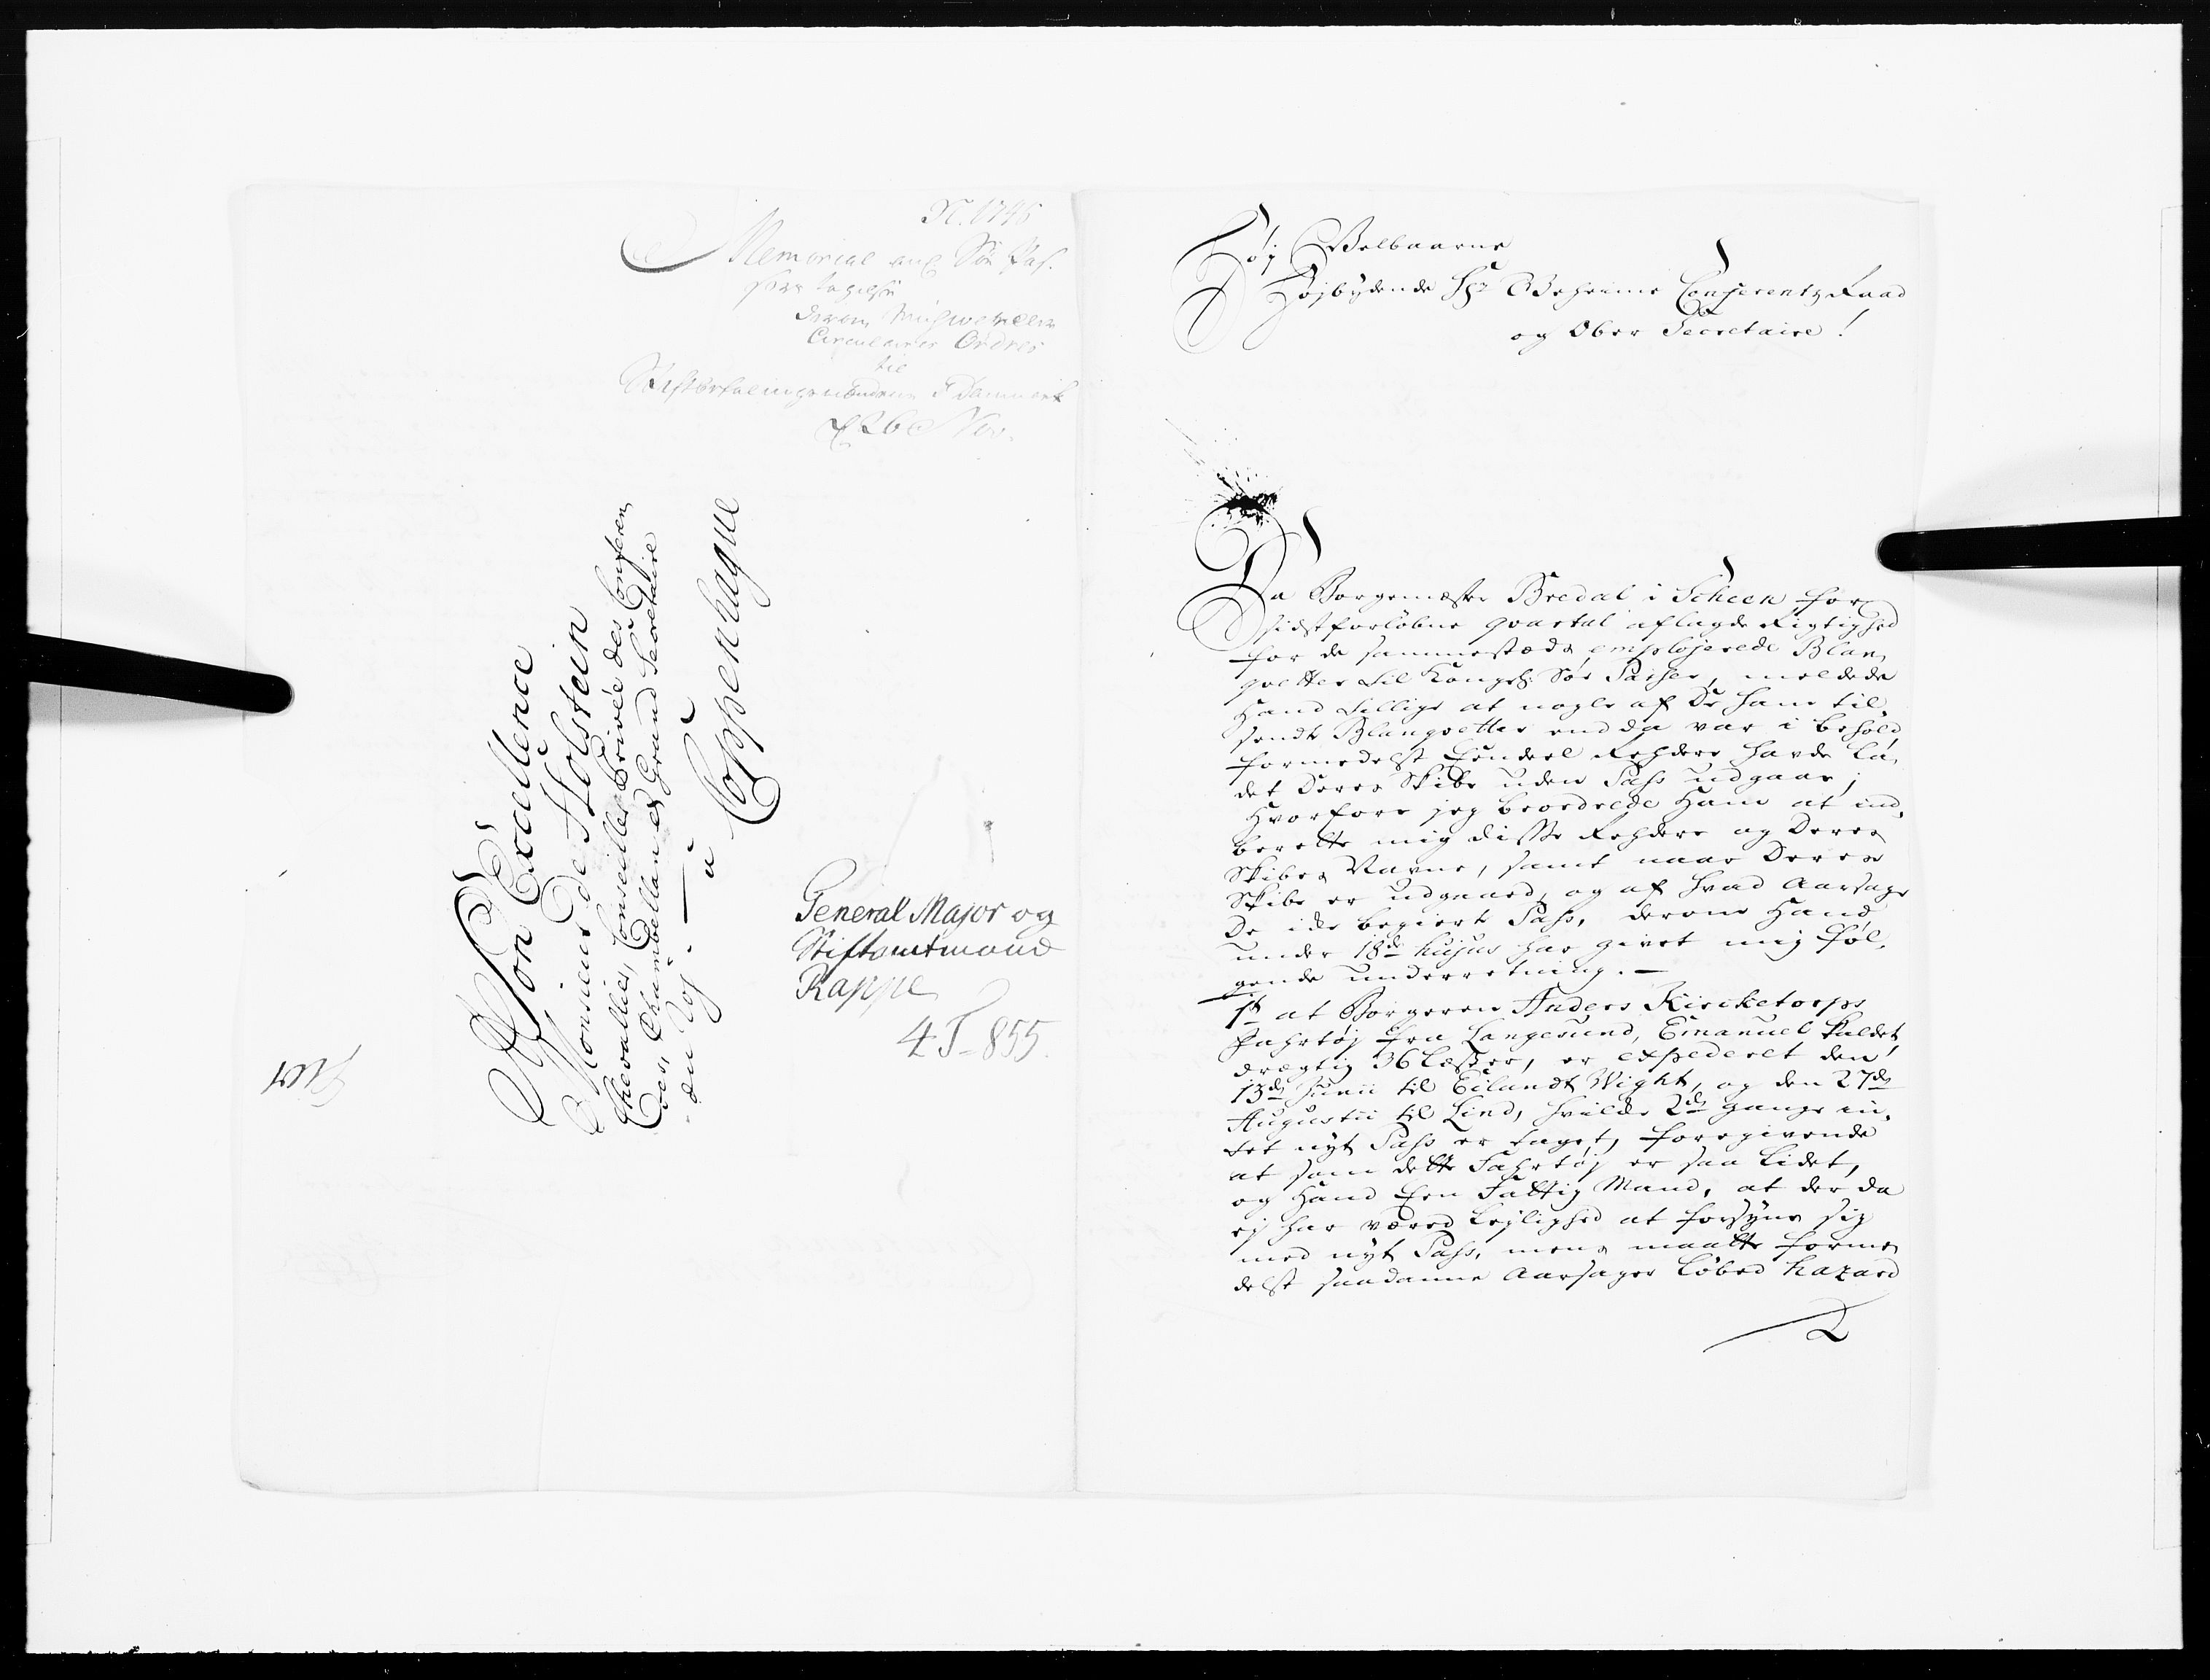 N. 1746
Memorial ang Söe Pas.
derom
Circulaires Ordres
til
Stiftbefalingsmændene i Danmark
d 26 Nov.
A Son Excellence
Monsieur de Holstein
Chevallier, Conseiller Privée des Conferen
ces, Chambellan et Grand Secretaire
du Roj. â
Coppenhague
General Major og
Stiftamtmand
Rappe
4 J - 855.
Høj Velbaarne
Højbydende Hr Geheime Conferentz Raad
og Ober Secretaire!
Da Borgemæster Bredal i Scheen for
sidst forløbne qvartal aflagde Rigtighed
for de sammestæds emplojerede Blan,
qvetter til Kongel: Söe Passer, meldede
Hand tillige at nogle af De ham til,
sendte Blanqvetter endda var i behold
formedelst Eendeel Rehdere havde la,
det Deres Skibe uden Pass udgaae;
Hvorfore jeg beordrede Ham at ind,
berette mig disse Rehdere og Deres
Skibes Navne, samt naar Deres
Skibe er udgaaed, og af hvad Aarsage
De icke begiert Pass, derom Hand
under 18de hujus har givet mig föl,
gende underretning. —
1te at Borgeren Anders Kircketorps
Fahrtöj fra Langesund, Emanuel kaldet,
drægtig 36 Læster, er expederet den
13de Junii til Eilandt Wight, og den 27de
Augustii til Lind, hvilcke 2de gange in,
tet nyt Pass er taget, foregivende
at som dette Fahrtöj er saa lidet,
og Hand Een Fattig Mand, at der da
ej har været Lejlighed at forsyne sig
med nyt Pass, mens maatte forme,
delst saadanne Aarsager løbed hazard